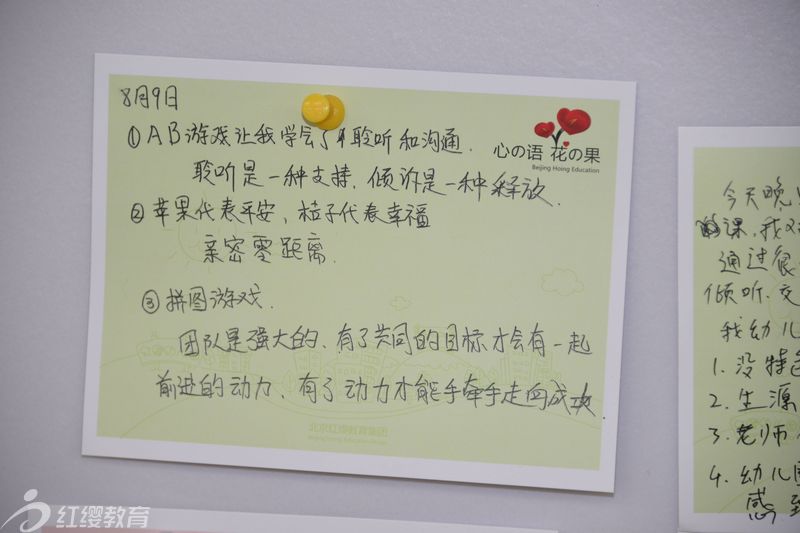 8月9日
①AB游戏让我学会了聆听和沟通.
聆听是一种支持,倾诉是一种释放.
②苹果代表平安、桔子代表幸福
亲密零距离.
③拼图游戏.
团队是强大的、有了共同的目标才会有一起
前进的动力、有了动力才能手牵手走向成功
心の语 花の果
Beijing Hoing Education
北京红缨教育集团
Beijing Hoing Education Group
今天晚
课,我又
通过很
倾听.交
我幼儿
1.没特色
2.生源
3.老师
4.幼儿园
感到
红缨教育